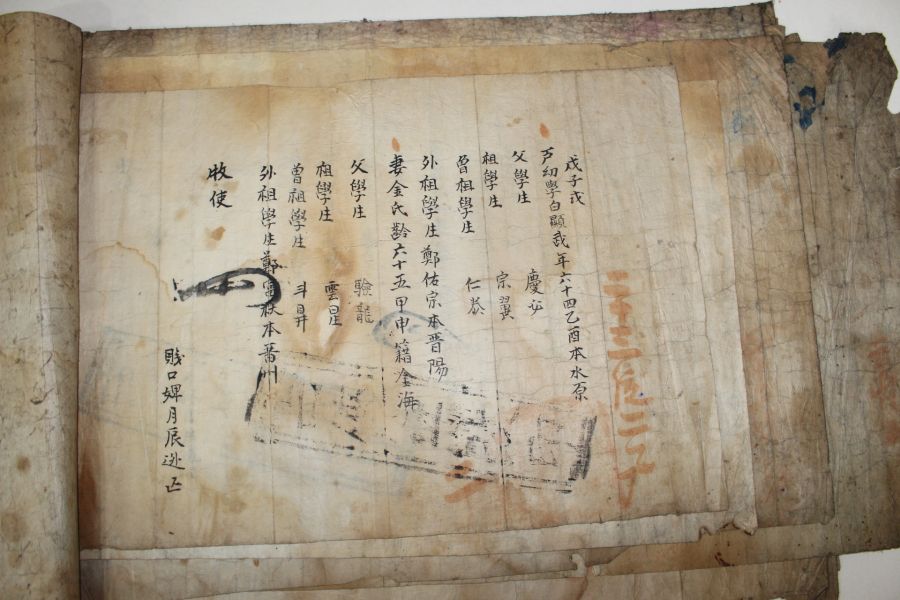 戊子式
戶幼學白顯哉年六十四乙酉本水原
父學生 慶
祖學生 宗翼
曾祖學生 仁
外祖學生鄭佑宗本晋陽
妻金氏齡六十五甲申籍金海
父學生 驗龍
祖學生 雲星
曾祖學生 斗昇
外祖學生鄭 秋本晋州
牧使
賤口婢月辰逃亡